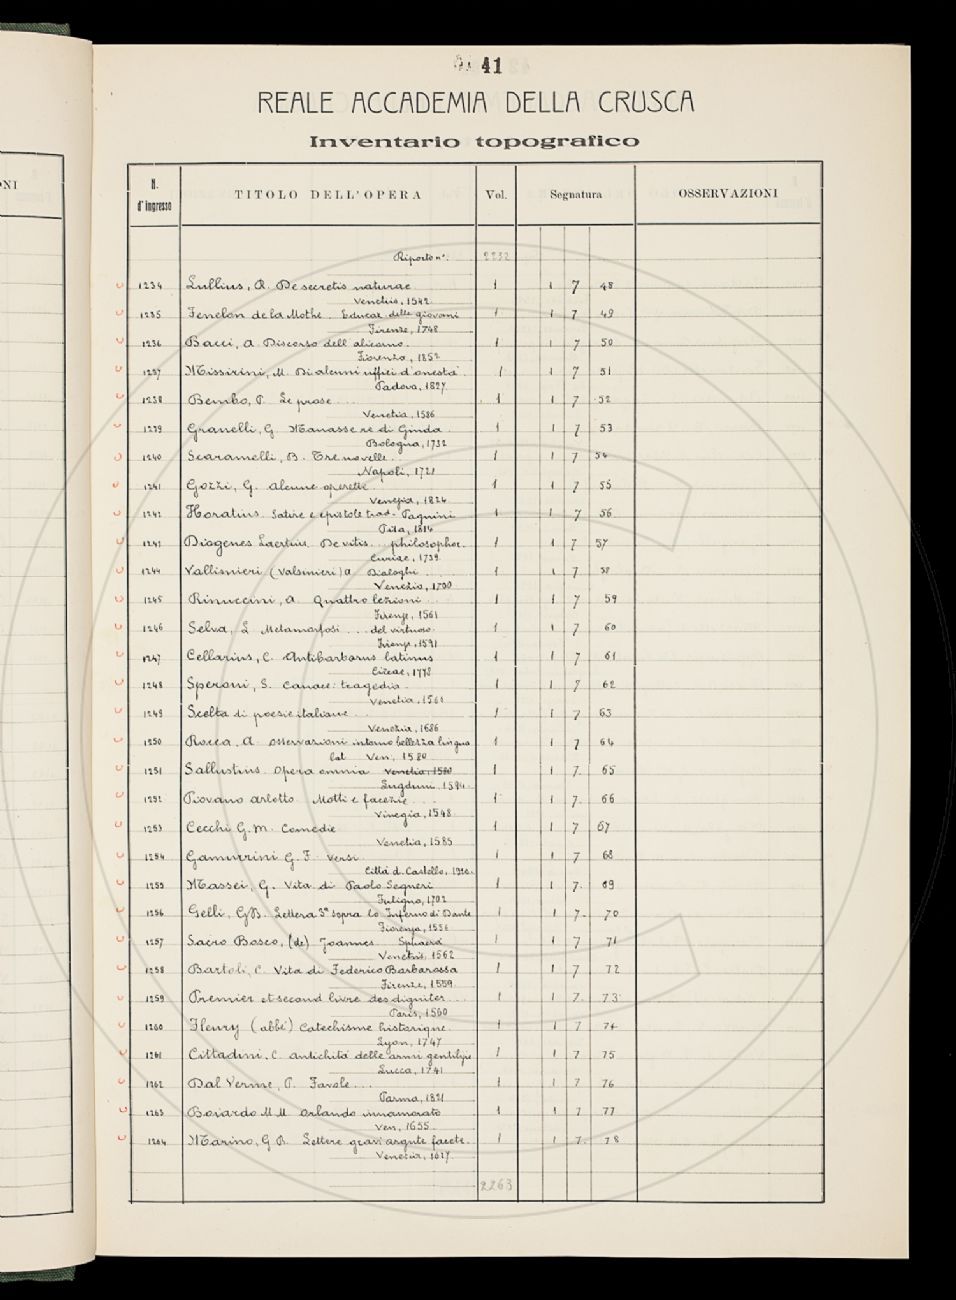 41
REALE ACCADEMIA DELLA CRUSCA
Inventario topografico
ONI
N. d'ingresso TITOLO DELL'OPERA Vol. Segnatura OSSERVAZIONI
Riporto n°. 2232
1234 Lullius, R. De secretis naturae 1 1 7 48
Venetiis, 1542
1235 Fenelon de la Mothe. Educaz. delle giovani 1 1 7 49
Firenze, 1748
1236 Bacci, A. Discorso dell'alicorno. 1 1 7 50
Fiorenza, 1852
1237 Missirini, M. Di alcuni uffici d'onestà. 1 1 7 51
Padova, 1827
1238 Bembo, P. Le prose ... 1 1 7 52
Venetia, 1586
1239 Granelli, G. Manasse re di Giuda. 1 1 7 53
Bologna, 1732
1240 Scaramelli, B. Tre novelle. 1 1 7 54
Napoli, 1721
1241 Gozzi, G. Alcune operette. 1 1 7 55
Venezia, 1824
1242 Horatius. Satire e epistole trad. Pagnini 1 1 7 56
Pisa, 1814
1243 Diogenes Laertius. De vitis... philosophor. 1 1 7 57
Curiae, 1739
1244 Vallisnieri (Valsinieri) A. Dialoghi ... 1 1 7 58
Venezia, 1700
1245 Rinuccini, A. Quattro lezioni ... 1 1 7 59
Firenze, 1561
1246 Selva, L. Metamorfosi ... del virtuoso. 1 1 7 60
Firenze, 1591
1247 Cellarius, C. Antibarbarus latinus 1 1 7 61
1778
1248 Speroni, S. Canace: tragedia. 1 1 7 62
Venetia, 1561
1249 Scelta di poesie italiane ... 1 1 7 63
Venezia, 1686
1250 Rocca, A. Osservazioni intorno bellezza lingua 1 1 7 64
lat. Ven, 1580
1251 Sallustius. Opera omnia Venetia, 1580 1 1 7 65
Lugduni, 1594.
1252 Piovano Arlotto. Motti e facezie ... 1 1 7 66
Vinegia, 1548
1253 Cecchi G. M. Comedie 1 1 7 67
Venetia, 1585
1254 Gamurrini G. F. Versi 1 1 7 68
Città d. Castello, 1920.
1255 Massei, G. Vita di Paolo Segneri 1 1 7 69
Fuligno, 1702
1256 Gelli, G.B. Lettura 3ª sopra lo Inferno di Dante 1 1 7 70
Fiorenza, 1556
1257 Sacro Bosco, (de) Joannes. Sphaera 1 1 7 71
Venetiis, 1562
1258 Bartoli, C. Vita di Federico Barbarossa 1 1 7 72
Firenze, 1559
1259 Premier et second livre des digniter ... 1 1 7 73
Paris, 1560
1260 Fleury (abbé) Catechisme historique. 1 1 7 74
Lyon, 1747
1261 Cittadini, C. Antichità delle armi gentilizie 1 1 7 75
Lucca, 1741
1262 Dal Verme, P. Favole ... 1 1 7 76
Parma, 1821
1263 Boiardo M. M. Orlando innamorato 1 1 7 77
Ven, 1655
1264 Marino, G. B. Lettere gravi argute facete. 1 1 7 78
Venezia, 1627.
2263